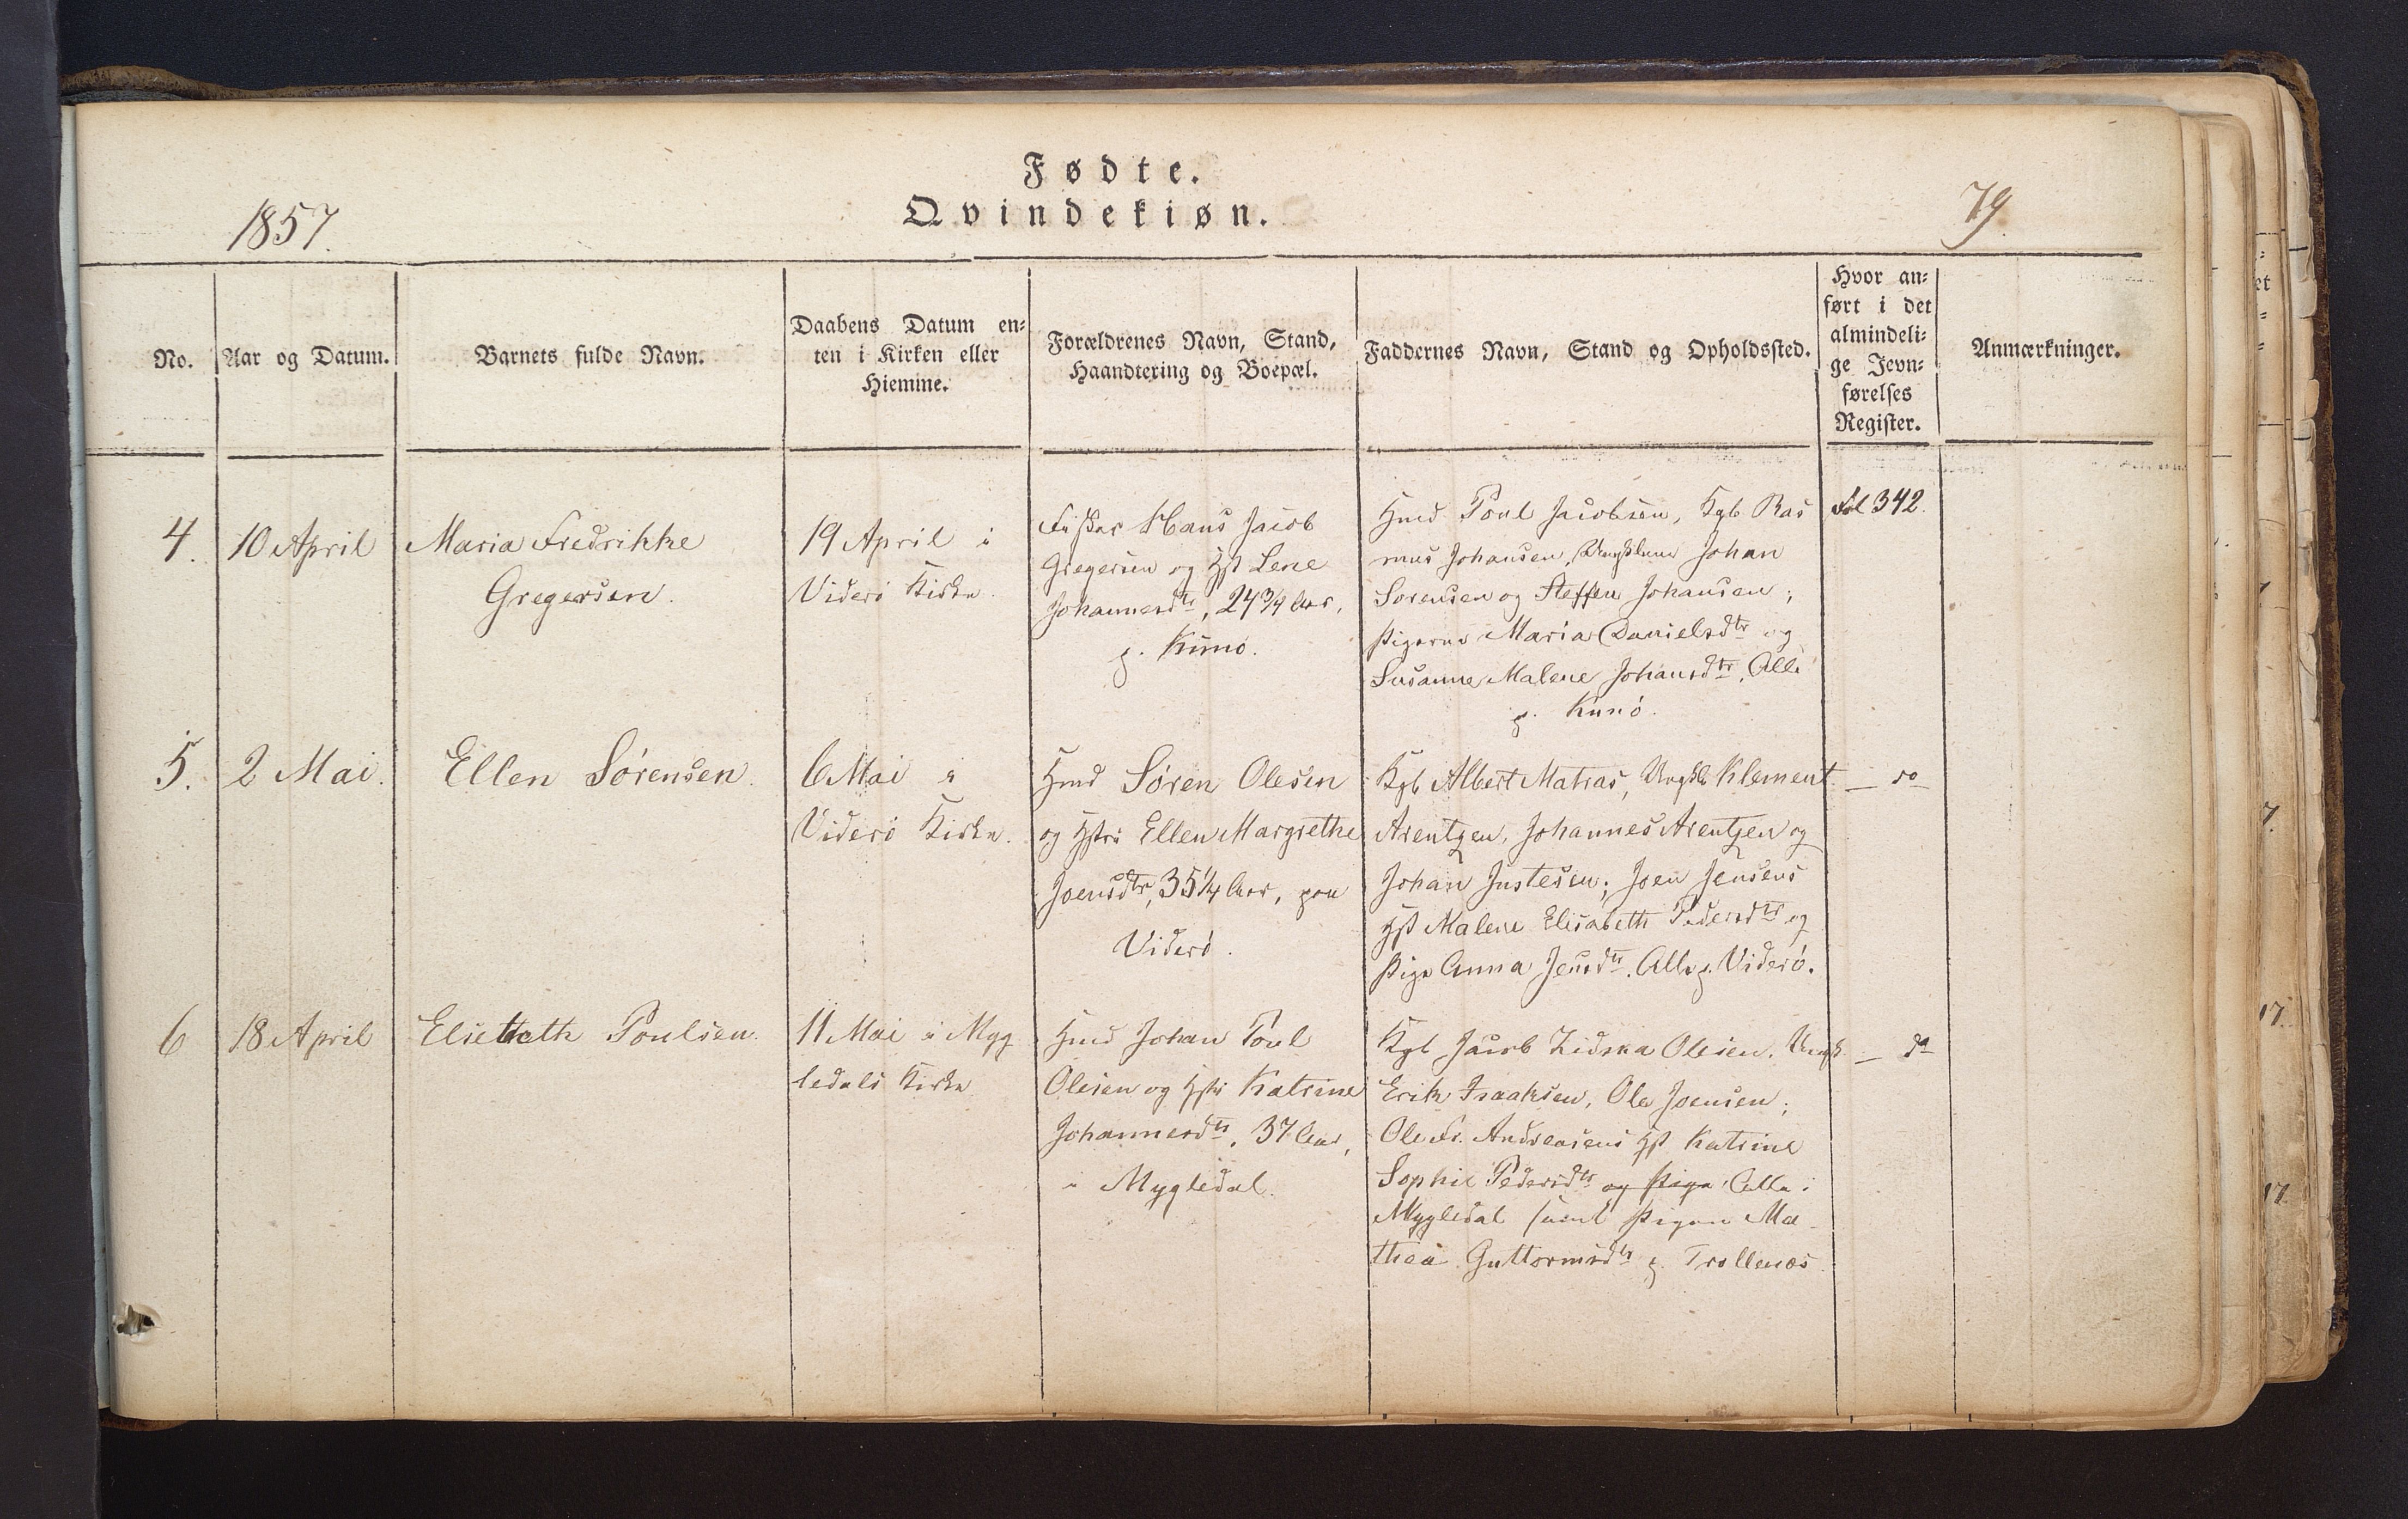 Fødte.
Qvindekiøn.
1857.
79.
No.
Aar og Datum.
Barnets fulde Navn.
Daabens Datum en-
ten i Kirken eller
Hiemme.
Forældrenes Navn, Stand,
Haandtering og Boepæl.
Faddernes Navn, Stand og Opholdssted.
Hvor an-
ført i det
almindeli-
ge Jevn-
førelses
Register.
Anmærkninger.
4.
10 April
Maria Fredrikke
Gregersen.
19 April i
Viderö Kirke.
Fisker Hans Jacob
Gregersen og Hst Lene
Johannesdtr, 24 3/4 Aar,
p. Kunö.
Hmd Poul Jacobsen, Kgb Ras
mus Johansen, Ungklene Johan
Sorensen og Steffen Johansen;
Pigerne Maria Danielsdtr og
Susanne Malene Johansdtr. Alle
p. Kunö.
Fol 342.
5.
2 Mai.
Ellen Sörensen.
6 Mai i
Viderö Kirke.
Hmd Søren Olesen
og Hstr Ellen Margrethe
Joensdtr, 35 1/4 Aar, paa
Viderö.
Kgb Albert Matras, Ungkl Klement
Arentzen, Johannes Arentzen og
Johan Justesen; Joen Jensens
Hst Malene Elisabeth Pedersdtr og
Pige Anna Jensdtr. Alle p. Viderö.
— do
6
18 April
Elsebeth Poulsen.
11 Mai i Myg
ledals Kirke
Hmd Johan Poul
Olesen og Hstr Katrine
Johannesdtr, 37 Aar,
i Mygledal.
Kgb Jacob Zidska Olesen. Ungk.
Erik Isaaksen, Ole Joensen;
Ole Fr. Andreasens Hst Katrine
Sophie Pedersdtr og Pige Alle i
Mygledal samt Pigen Ma-
thea Guttormsdtr p. Trollenæs.
— do